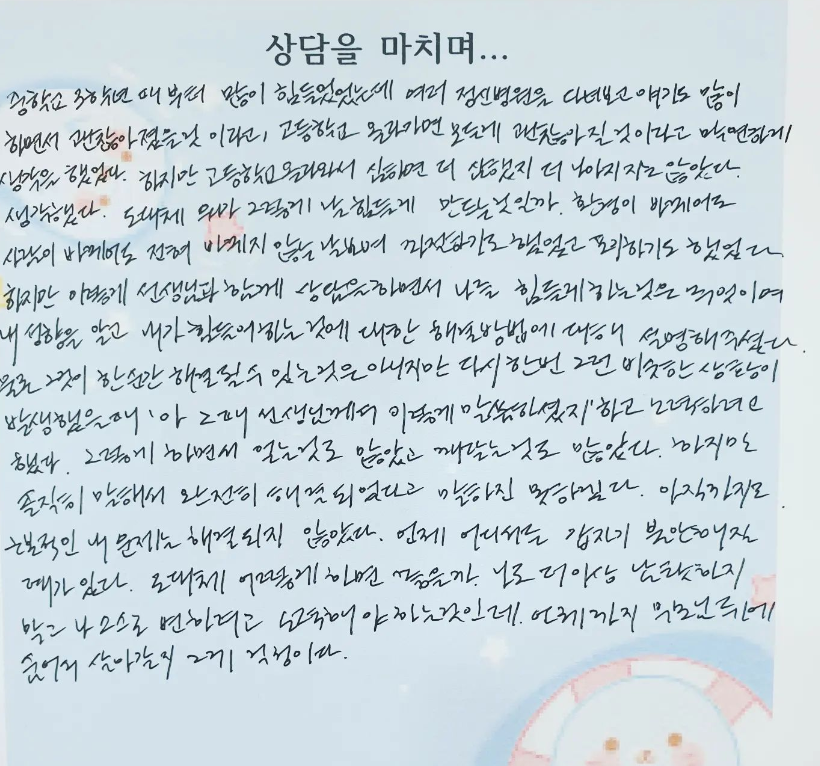 상담을 마치며...
중학교 3학년 때 부터 많이 힘들었었는데 여러 정신병원을 다녀보고 얘기도 많이
하면서 괜찮아졌을것 이라고, 고등학교 올라가면 모든게 괜찮아 질 것이라고 막연하게
생각을 했었다. 하지만 고등학교 올라와서 심하면 더 심했지 더 나아지지는 않았다.
생각했다. 도대체 뭐가 그렇게 날 힘들게 만드는것일까. 환경이 바뀌어도
사람이 바뀌어도 전혀 바뀌지 않는 날보며 자책하기도 했었고 포기하기도 했었다.
하지만 이렇게 선생님과 함께 상담을하면서 나를 힘들게하는것은 무엇이며
내 성향을 알고 내가 힘들어하는 것에 대한 해결방법에 대해 설명해주셨다.
물론 그것이 한순간 해결될수 있는것은아니지만 다시한번 그런 비슷한 상황이
발생했을때 '아 그때 선생님께서 이렇게 말씀하셨지'하고 노력하려고
했다. 그렇게 하면서 얻는것도 많았고 깨닫는것도 많았다. 하지만
솔직히 말해서 완전히 해결되었다고 말하진 못하겠다. 아직까지도
근본적인 내 문제는 해결되지 않았다. 언제 어디서든 갑자기 불안해질
때가 있다. 도대체 어떻게 하면 좋을까. 나도 더이상 남탓하지
말고 나 스스로 변하려고 노력해야하는것인데. 언제까지 부모님뒤에
숨어서 살아갈지 그게 걱정이다.